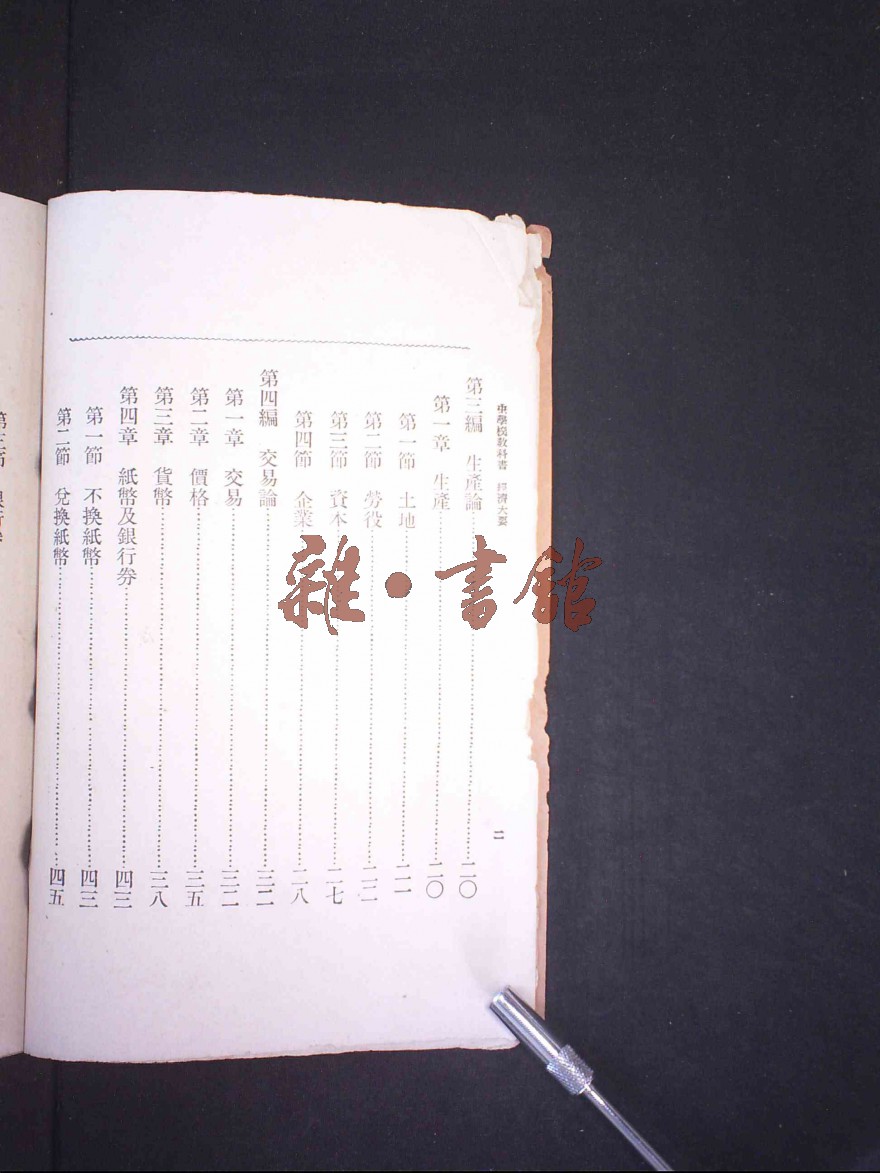 中學校教科書　經濟大要
二
第三編　生產論……二〇
第一章　生產……二〇
第一節　土地……二一
第二節　勞役……二二
第三節　資本……二七
第四節　企業……二八
第四編　交易論……三二
第一章　交易……三二
第二章　價格……三五
第三章　貨幣……三八
第四章　紙幣及銀行券……四三
第一節　不換紙幣……四三
第二節　兌換紙幣……四五
雜·書館